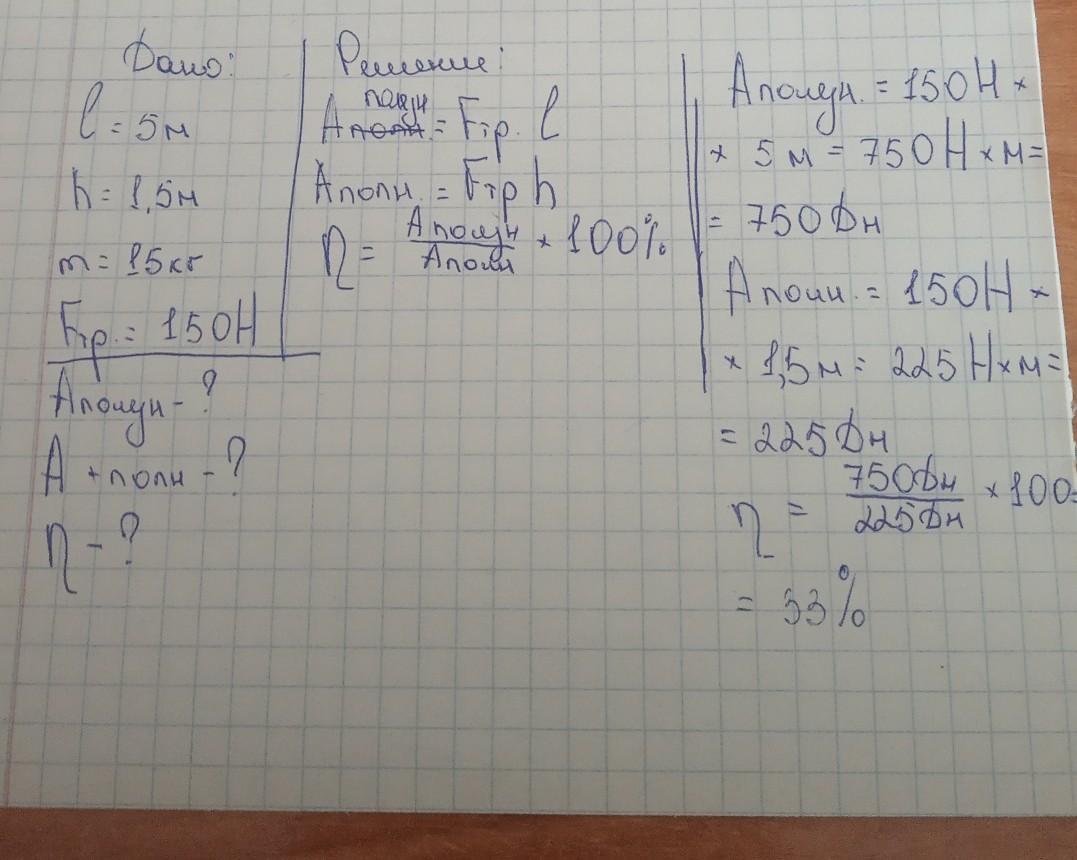 Дано:
l = 5м
h = 1,5м
m = 15кг
Fтр. = 150Н
Аполун - ?
А + полн - ?
η - ?
Решение:
полун
Аполн = Fтр. l
Аполн. = Fтр h
η = Аполун / Аполн × 100%
Аполун. = 150Н ×
× 5м = 750Н×м =
= 750Дн
Аполн. = 150Н ×
× 1,5м = 225Н×м =
= 225Дн
η = 750Дн / 225Дн × 100=
= 33%